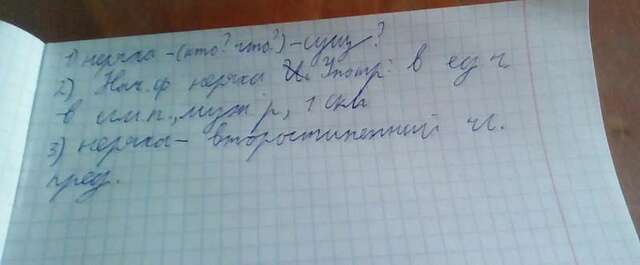 1) неряха - (кто? что?) - сущ?
2) Нач. ф неряха И. Употр: в ед ч
в им.п., муж р, 1 скл
3) неряха - второстипенный чл.
пред.